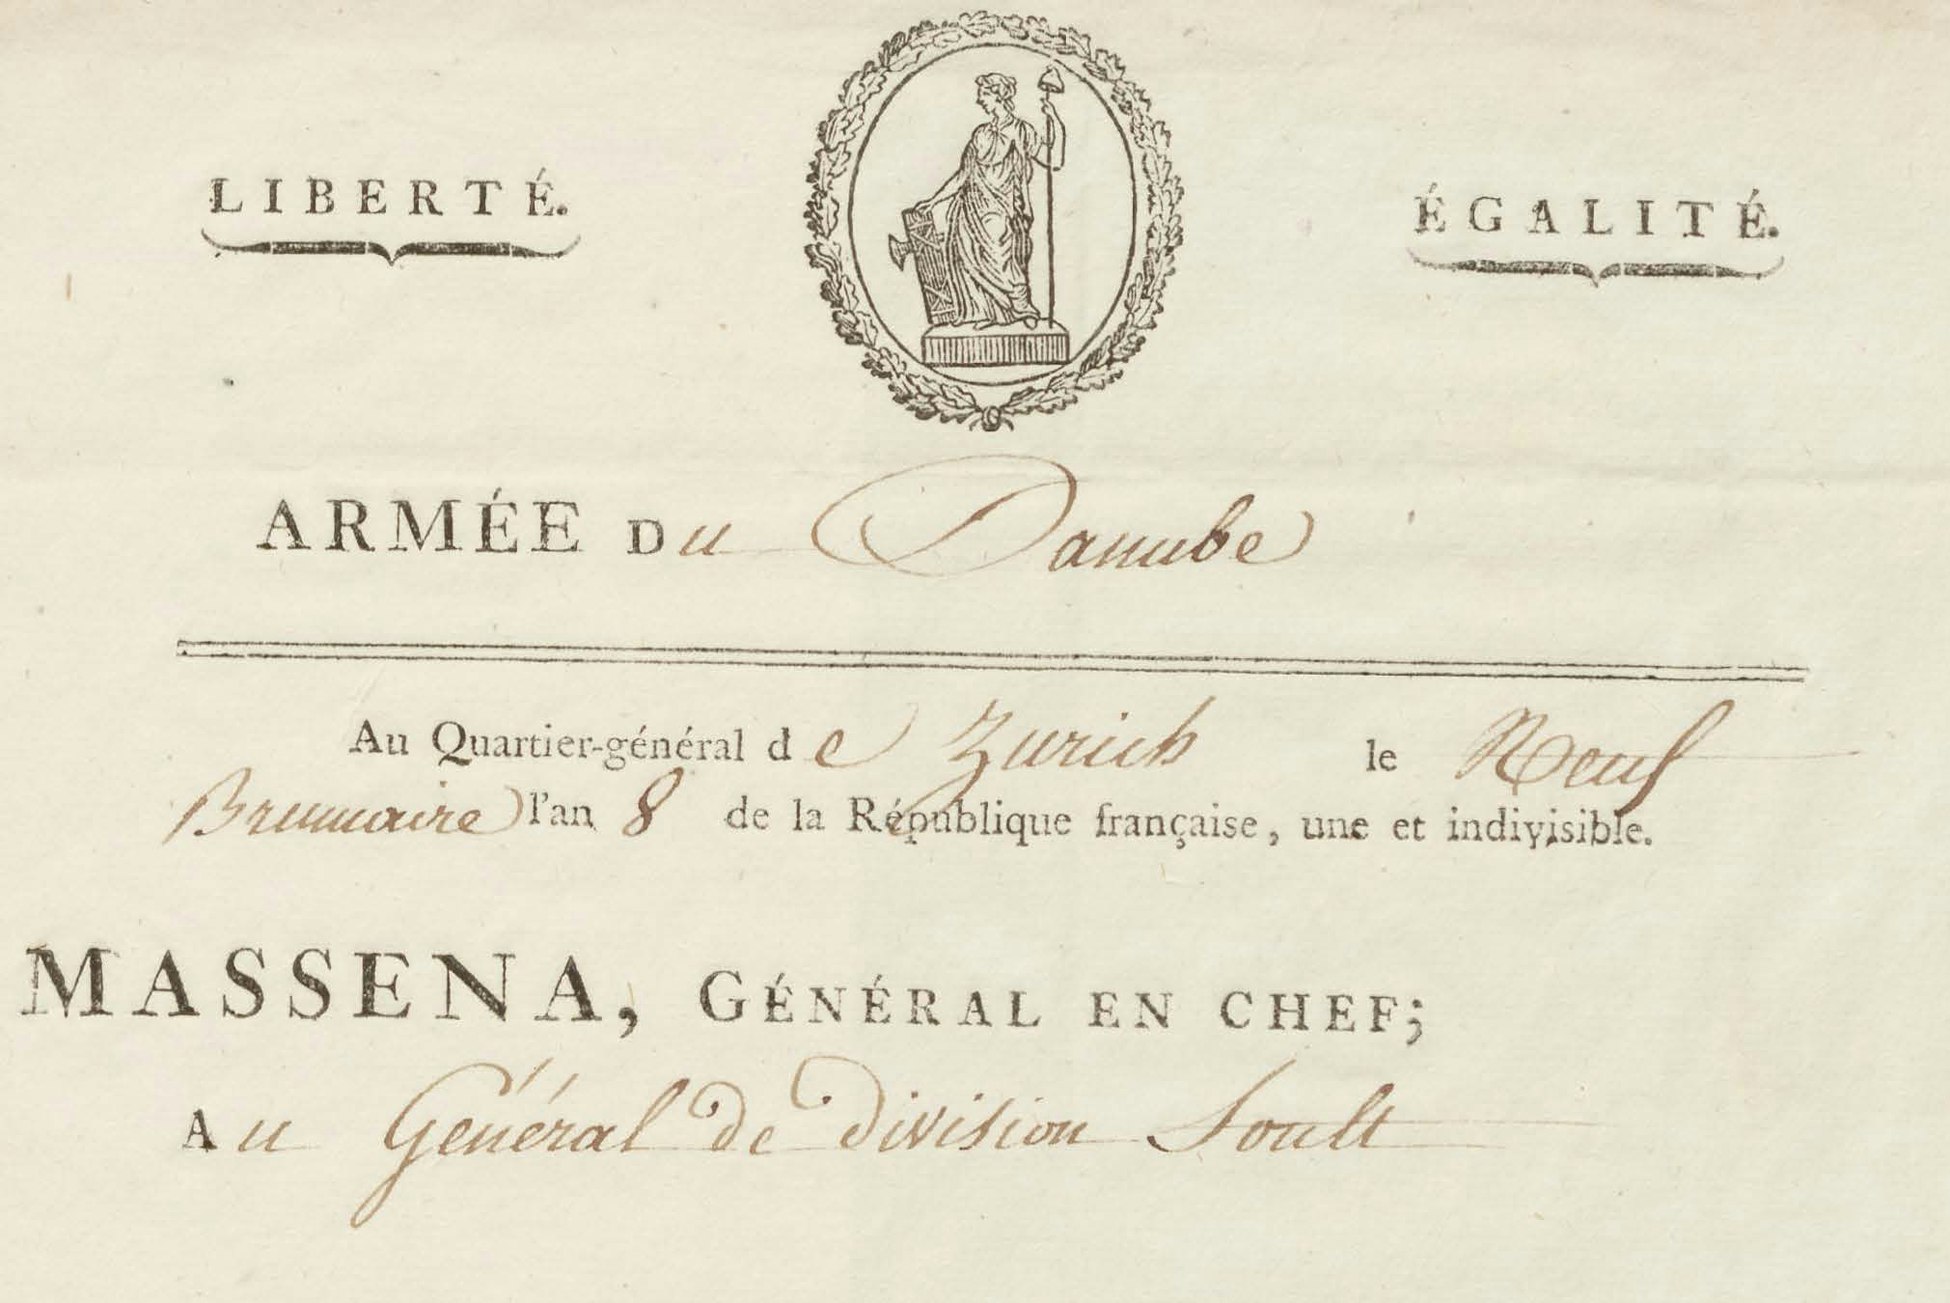 LIBERTÉ. ÉGALITÉ.
ARMÉE DU Danube
Au Quartier-général de Zurich le Neuf
Brumaire l'an 8 de la République française, une et indivisible.
MASSENA, GÉNÉRAL EN CHEF;
Au Général de division Soult